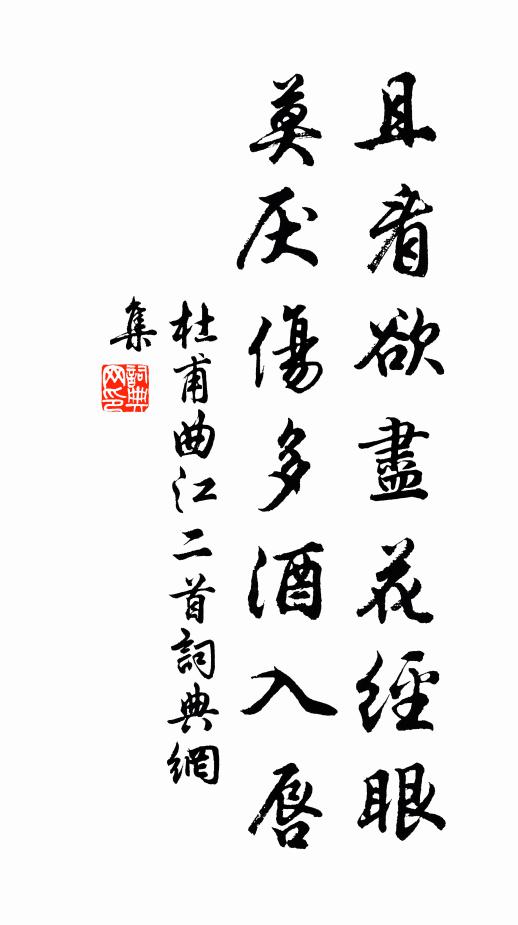 且看欲盡花經眼
莫厌傷多酒入唇
杜甫曲江二首詞典網
集
詞典
网印